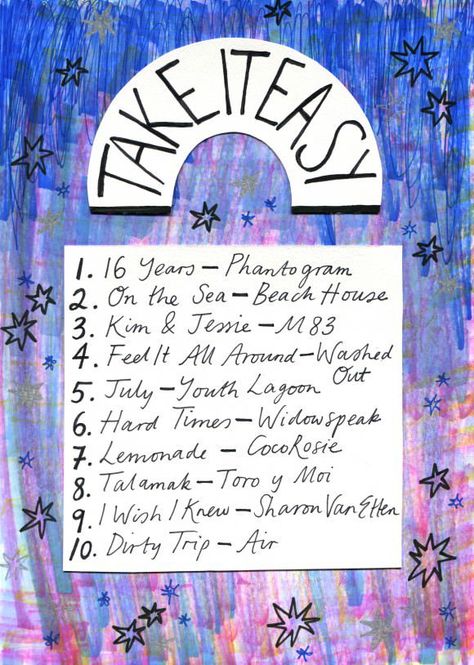 TAKE IT EASY
1. 16 Years – Phantogram
2. On the Sea – Beach House
3. Kim & Jessie – M83
4. Feel It All Around – Washed
Out
5. July – Youth Lagoon
6. Hard Times – Widowspeak
7. Lemonade – CocoRosie
8. Talamak – Toro y Moi
9. I Wish I Knew – Sharon Van Etten
10. Dirty Trip – Air